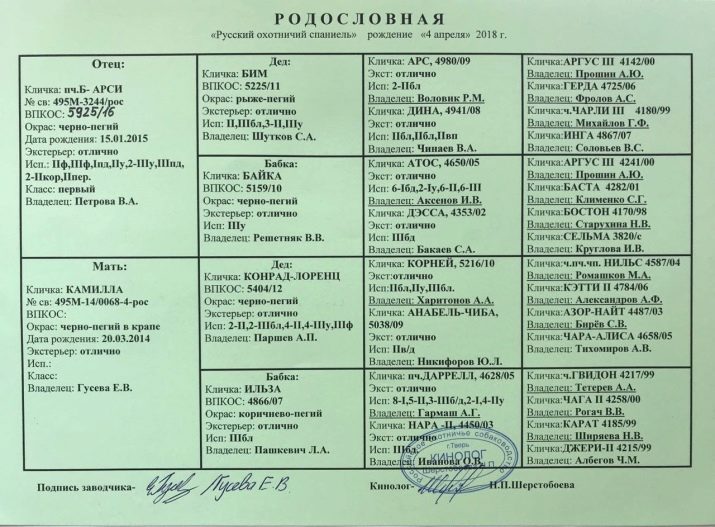 РОДОСЛОВНАЯ
«Русский охотничий спаниель» рождение «4 апреля» 2018 г.
Отец:
Кличка: пч.Б- АРСИ
№ св: 495М-3244/рос
ВПКОС: 5925/16
Окрас: черно-пегий
Дата рождения: 15.01.2015
Экстерьер: отлично
Исп.: Пф,IIIф,Iпд,Iу,2-IIIу,IIIпд,
2-IIкор,IIпер.
Класс: первый
Владелец: Петрова В.А.
Мать:
Кличка: КАМИЛЛА
№ св: 495М-14/0068-4-рос
ВПКОС:
Окрас: черно-пегий в крапе
Дата рождения: 20.03.2014
Экстерьер: отлично
Исп.:
Класс:
Владелец: Гусева Е.В.
Дед:
Кличка: БИМ
ВПКОС: 5225/11
Окрас: рыже-пегий
Экстерьер: отлично
Исп: II,IIIбл,3-II,IIу
Владелец: Шутков С.А.
Бабка:
Кличка: БАЙКА
ВПКОС: 5159/10
Окрас: черно-пегий
Экстерьер: отлично
Исп: IIIу
Владелец: Решетняк В.В.
Дед:
Кличка: КОНРАД-ЛОРЕНЦ
ВПКОС: 5404/12
Окрас: черно-пегий
Экстерьер: отлично
Исп: 2-II,2-IIIбл,4-II,4-IIIу,IIIф
Владелец: Паршев А.П.
Бабка:
Кличка: ИЛЬЗА
ВПКОС: 4866/07
Окрас: коричнево-пегий
Экстерьер: отлично
Исп: IIIбл
Владелец: Пашкевич Л.А.
Кличка: АРС, 4980/09
Экст: отлично
Исп: 2-IIбл
Владелец: Воловик Р.М.
Кличка: ДИНА, 4941/08
Экст: отлично
Исп: IIбл,IIбл,IIвп
Владелец: Чинаев В.А.
Кличка: АТОС, 4650/05
Экст: отлично
Исп: 6-Iбд,2-Iу,6-II,6-III
Владелец: Аксенов И.В.
Кличка: ДЭССА, 4353/02
Экст: отлично
Исп: IIIбд
Владелец: Бакаев С.А.
Кличка: КОРНЕЙ, 5216/10
Экст:отлично
Исп:IIбл,IIу,IIбл.
Владелец: Харитонов А.А.
Кличка: АНАБЕЛЬ-ЧИБА,
5038/09
Экст: отлично
Исп: IIв/д
Владелец: Никифоров Ю.Л.
Кличка: пч.ДАРРЕЛЛ, 4628/05
Экст: отлично
Исп: 8-I,5-II,3-IIIб/д,2-I,4-IIу
Владелец: Гармаш А.Г.
Кличка: НАРА -II, 4450/03
Экст: отлично
Исп: IIIбд
Владелец: Иванова О.В.
Кличка:АРГУС III 4142/00
Владелец: Прошин А.Ю.
Кличка:ГЕРДА 4725/06
Владелец: Фролов А.С.
Кличка:ч.ЧАРЛИ III 4180/99
Владелец: Михайлов Г.Ф.
Кличка:ИНГА 4867/07
Владелец: Соловьев В.С.
Кличка:АРГУС III 4241/00
Владелец: Прошин А.Ю.
Кличка:БАСТА 4282/01
Владелец: Клименко С.Г.
Кличка:БОСТОН 4170/98
Владелец: Старухина Н.В.
Кличка:СЕЛЬМА 3820/с
Владелец: Круглова И.В.
Кличка:ч.пч.чп. НИЛЬС 4587/04
Владелец: Ромашков М.А.
Кличка:КЭТТИ II 4784/06
Владелец: Александров А.Ф.
Кличка:АЗОР-НАЙТ 4487/03
Владелец: Бирёв С.В.
Кличка:ЧАРА-АЛИСА 4658/05
Владелец: Тихомиров А.В.
Кличка:ч.ГВИДОН 4217/99
Владелец: Тетерев А.А.
Кличка:ЧАГА II 4258/00
Владелец: Рогач В.В.
Кличка:КАРАТ 4185/99
Владелец: Ширяева Н.В.
Кличка:ДЖЕРИ-II 4215/99
Владелец: Албегов Ч.М.
г.Тверь
КИНОЛОГ
Подпись заводчика- Гусева Е.В
Кинолог- Н.П.Шерстобоева